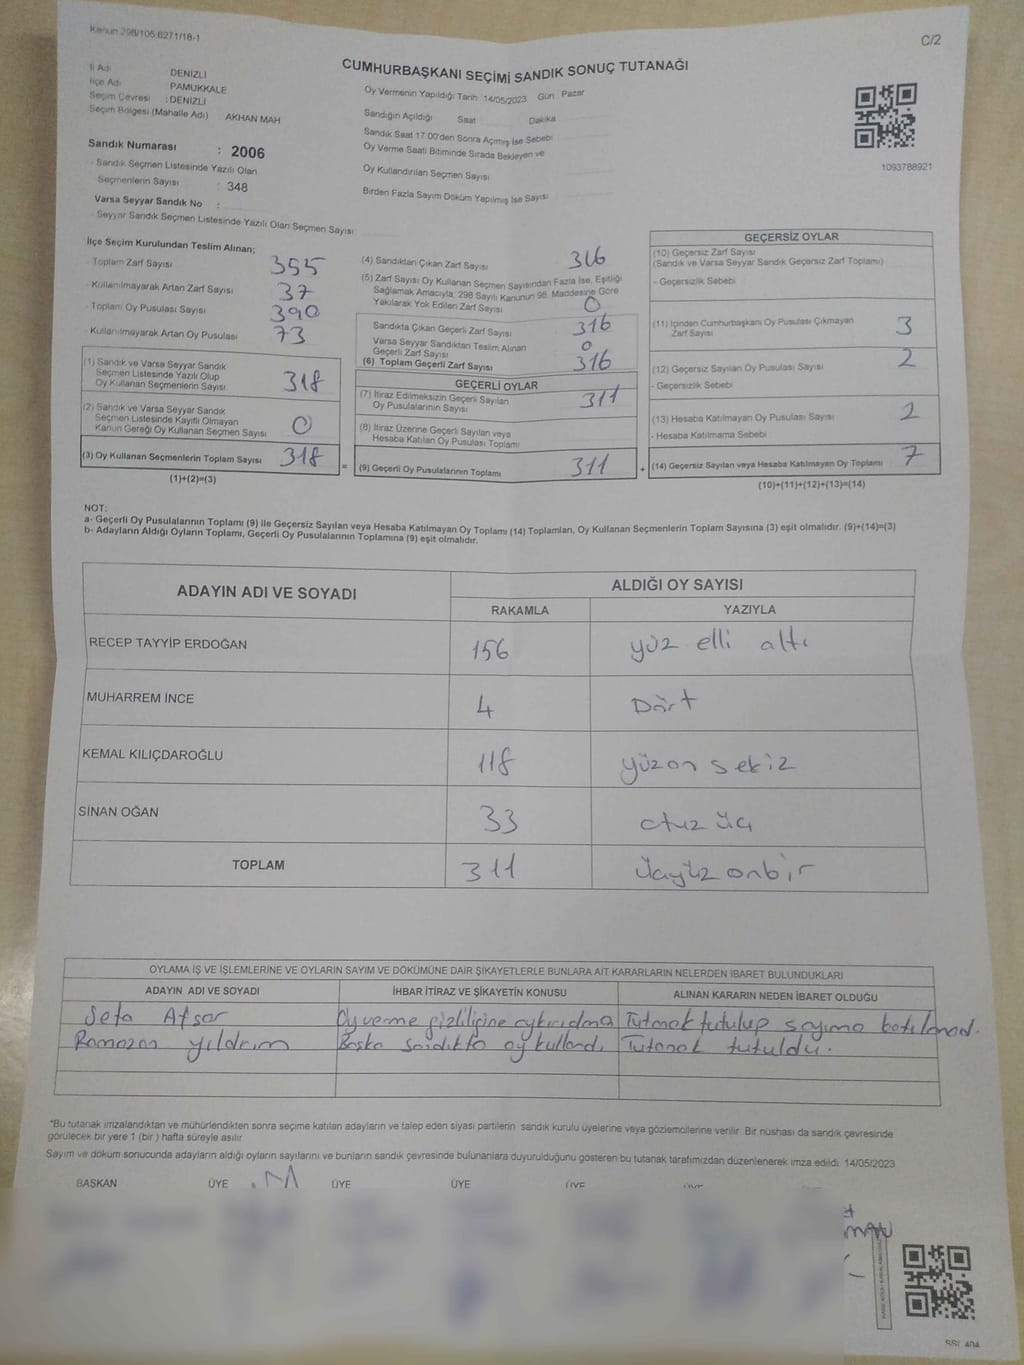 Kanun 298/105,6271/18-1
C/2
CUMHURBAŞKANI SEÇİMİ SANDIK SONUÇ TUTANAĞI
İl Adı DENİZLİ
İlçe Adı PAMUKKALE
Seçim Çevresi : DENİZLİ
Seçim Bölgesi (Mahalle Adı) AKHAN MAH
Oy Vermenin Yapıldığı Tarih 14/05/2023 Gün Pazar
Sandığın Açıldığı Saat Dakika
Sandık Saat 17:00'den Sonra Açımış İse Sebebi
Oy Verme Saati Bitiminde Sırada Bekleyen ve
Oy Kullandırılan Seçmen Sayısı
Birden Fazla Sayım Döküm Yapılmış İse Sayısı
1093788921
Sandık Numarası : 2006
- Sandık Seçmen Listesinde Yazılı Olan
Seçmenlerin Sayısı : 348
Varsa Seyyar Sandık No :
- Seyyar Sandık Seçmen Listesinde Yazılı Olan Seçmen Sayısı
İlçe Seçim Kurulundan Teslim Alınan;
- Toplam Zarf Sayısı 355
- Kullanılmayarak Artan Zarf Sayısı 37
- Toplam Oy Pusulası Sayısı 390
- Kullanılmayarak Artan Oy Pusulası 73
(1) Sandık ve Varsa Seyyar Sandık
Seçmen Listesinde Yazılı Olup
Oy Kullanan Seçmenlerin Sayısı 318
(2) Sandık ve Varsa Seyyar Sandık
Seçmen Listesinde Kayıtlı Olmayan
Kanun Gereği Oy Kullanan Seçmen Sayısı 0
(3) Oy Kullanan Seçmenlerin Toplam Sayısı 318
(1)+(2)=(3)
=
(4) Sandıktan Çıkan Zarf Sayısı 316
(5) Zarf Sayısı Oy Kullanan Seçmen Sayısından Fazla İse, Eşitliği
Sağlamak Amacıyla, 298 Sayılı Kanunun 98. Maddesine Göre
Yakılarak Yok Edilen Zarf Sayısı 0
Sandıkta Çıkan Geçerli Zarf Sayısı 316
Varsa Seyyar Sandıktan Teslim Alınan
Geçerli Zarf Sayısı 0
(6) Toplam Geçerli Zarf Sayısı 316
GEÇERLİ OYLAR
(7) İtiraz Edilmeksizin Geçerli Sayılan
Oy Pusulalarının Sayısı 311
(8) İtiraz Üzerine Geçerli Sayılan veya
Hesaba Katılan Oy Pusulası Toplamı
(9) Geçerli Oy Pusulalarının Toplamı 311
+
GEÇERSİZ OYLAR
(10) Geçersiz Zarf Sayısı
(Sandık ve Varsa Seyyar Sandık Geçersiz Zarf Toplamı)
- Geçersizlik Sebebi
(11) İçinden Cumhurbaşkanı Oy Pusulası Çıkmayan
Zarf Sayısı 3
(12) Geçersiz Sayılan Oy Pusulası Sayısı 2
- Geçersizlik Sebebi
(13) Hesaba Katılmayan Oy Pusulası Sayısı 2
- Hesaba Katılmama Sebebi
(14) Geçersiz Sayılan veya Hesaba Katılmayan Oy Toplamı 7
(10)+(11)+(12)+(13)=(14)
NOT:
a- Geçerli Oy Pusulalarının Toplamı (9) ile Geçersiz Sayılan veya Hesaba Katılmayan Oy Toplamı (14) Toplamları, Oy Kullanan Seçmenlerin Toplam Sayısına (3) eşit olmalıdır. (9)+(14)=(3)
b- Adayların Aldığı Oyların Toplamı, Geçerli Oy Pusulalarının Toplamına (9) eşit olmalıdır.
ADAYIN ADI VE SOYADI ALDIĞI OY SAYISI
RAKAMLA YAZIYLA
RECEP TAYYİP ERDOĞAN 156 yüz elli altı
MUHARREM İNCE 4 Dört
KEMAL KILIÇDAROĞLU 118 yüzon sekiz
SİNAN OĞAN 33 otuz üç
TOPLAM 311 üçyüz onbir
OYLAMA İŞ VE İŞLEMLERİNE VE OYLARIN SAYIM VE DÖKÜMÜNE DAİR ŞİKAYETLERLE BUNLARA AİT KARARLARIN NELERDEN İBARET BULUNDUKLARI
ADAYIN ADI VE SOYADI İHBAR İTİRAZ VE ŞİKAYETİN KONUSU ALINAN KARARIN NEDEN İBARET OLDUĞU
Sefa Afşar Oy verme gizliliğine aykırıdma Tutmak tutulup sayıma katılmad.
Ramazan yıldırım Başka sandıkta oy kullandı Tutanak tutuldu.
*Bu tutanak imzalandıktan ve mühürlendikten sonra seçime katılan adayların ve talep eden siyasi partilerin sandık kurulu üyelerine veya gözlemcilerine verilir. Bir nüshası da sandık çevresinde
görülecek bir yere 1 (bir) hafta süreyle asılır.
Sayım ve döküm sonucunda adayların aldığı oyların sayılarını ve bunların sandık çevresinde bulunanlara duyurulduğunu gösteren bu tutanak tarafımızdan düzenlenerek imza edildi. 14/05/2023
BAŞKAN ÜYE ÜYE ÜYE ÜYE